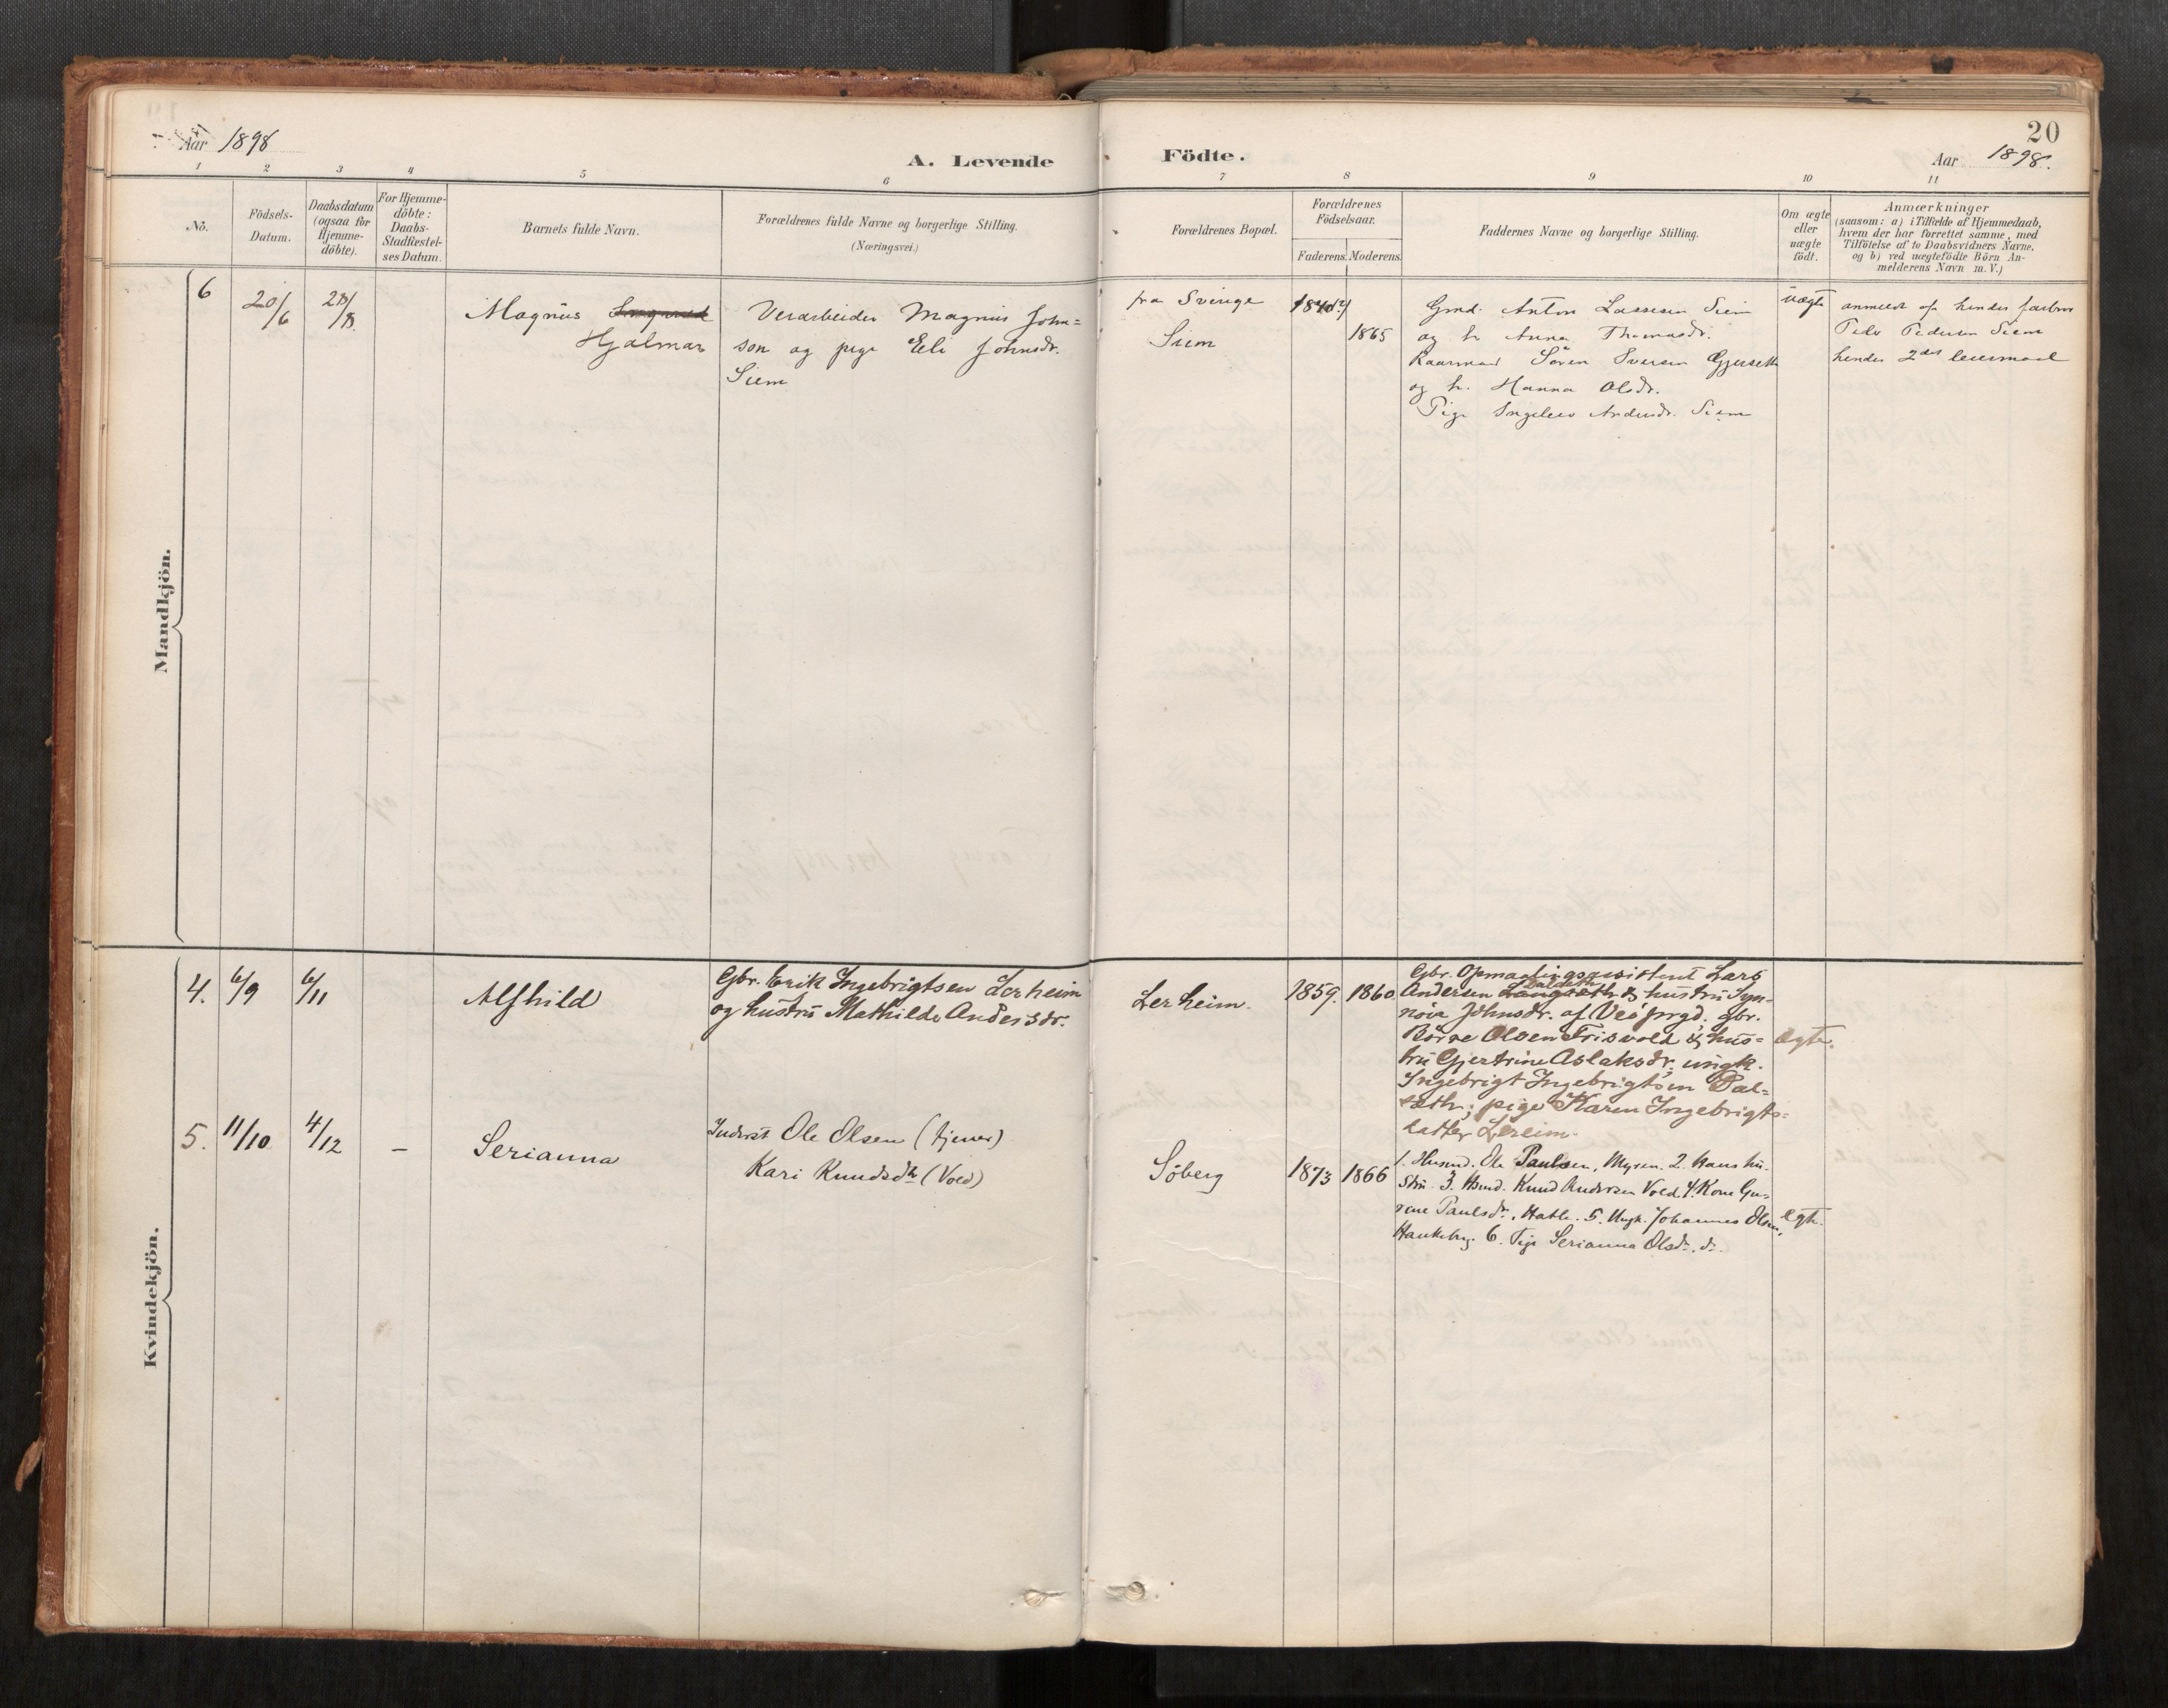 Aar 1898
A. Levende
Födte.
20
Aar 1898.
1 2 3 4 5 6 7 8 9 10 11
No.
Födsels-
Datum.
Daabsdatum
(ogsaa for
Hjemme-
döbte).
For Hjemme-
döbte:
Daabs-
Stadfæstel-
ses Datum.
Barnets fulde Navn.
Forældrenes fulde Navne og borgerlige Stilling.
(Næringsvei.)
Forældrenes Bopæl.
Forældrenes
Födselsaar.
Faderens. Moderens.
Faddernes Navne og borgerlige Stilling.
Om ægte
eller
uægte
födt.
Anmærkninger
(saasom: a) i Tilfælde af Hjemmedaab,
hvem der har forrettet samme, med
Tilföielse af to Daabsvidners Navne,
og b) ved uægtefödte Börn An-
melderens Navn m. V.)
Mandkjön.
6
20/6
28/8
Magnus
Hjalmar
Veiarbeider Magnus John=
son og pige Eli Johnsdr.
Siem
fra Sverige
Siem
1840(?)
1865
Gmd. Anton Lassesen Siem
og h. Anna Thomasdr.
Kaarmand Sören Iversen Gjerseth
og h. Hanna Olsdr.
Pige Ingeleiv Andersdr. Siem
uægte
anmeldt af hendes farbror
Peder Pedersen Siem
hendes 2det leiermaal
Kvindekjön.
4.
6/9
6/11
Alfhild
Gbr. Erik Ingebrigtsen Lerheim
og hustru Mathilde Andersdr.
Lerheim.
1859. 1860.
Gbr. Opmaalingsassistent Lars
Andersen Langsæth & hustru Syn-
növe Johnsdr. af Veö prgd. gbr.
Börre Olsen Frisvold & hus-
tru Gjertrine Aslaksdr; ungk.
Ingebrigt Ingebrigtsen Dal-
sæth; pige Karen Ingebrigts-
datter Lereim.
Ægte.
5.
11/10
4/12
–
Serianna
Inderst Ole Olsen (tjener)
Kari Knudsdtr (Vold)
Söberg
1873 1866
1. Husmd. Ole Paulsen, Myren. 2. Hans hu-
stru. 3. Hsmd. Knud Andersen Vold. 4. Kone Gu-
rine Paulsdr., Hatle. 5. Ungk. Johannes Olsen,
Haukeberg. 6. Pige Serianna Olsdr., do.
Ægte.